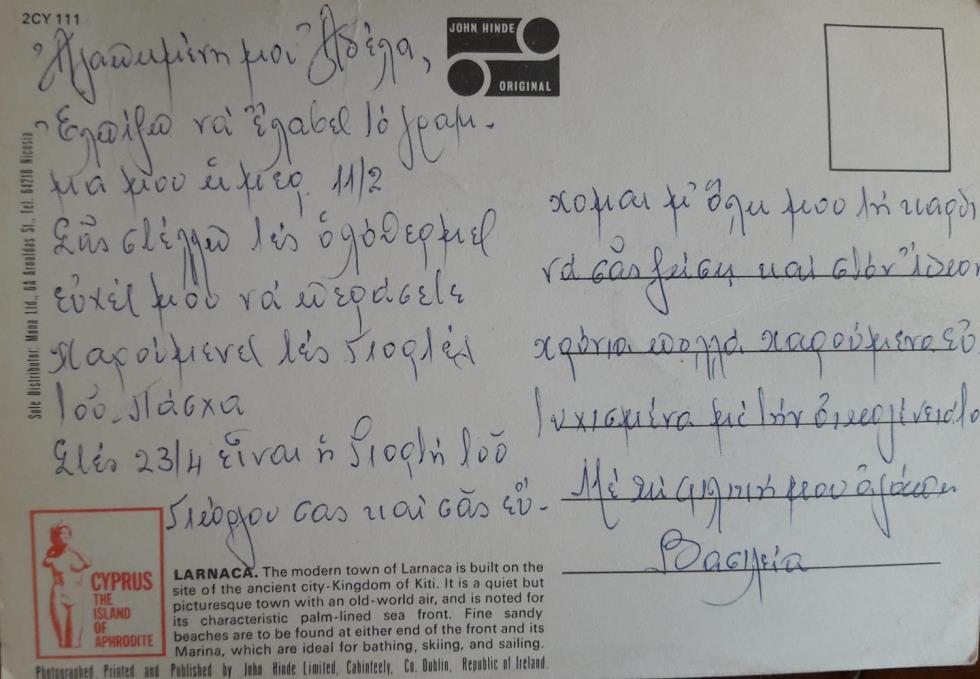 2CY 111
JOHN HINDE
ORIGINAL
Ἀγαπημένη μου Ἀδέλα,
Ἐλπίζω νά ἔλαβες τό γραμ-
μα μου ἡμερ. 11/2
Σᾶς στέλλω τές ὁλόθερμες
εὐχές μου νά περάσετε
χαρούμενες τές γιορτές
τοῦ Πάσχα
Στές 23/4 εἶναι ἡ γιορτή τοῦ
Γιώργου σας καί σᾶς εὔ-
χομαι μ' ὅλη μου τή καρδι
νά σᾶς ζήση καί στόν
χρόνια πολλά χαρούμενα εὐ
τυχισμένα μέ τήν οἰκογένειά το
Μέ μου ἀγάπη
Βασιλεία
Sole Distributor: Mona Ltd., 6A Arnaldas St., Tel. 64218 Nicosia
CYPRUS
THE
ISLAND
OF
APHRODITE
LARNACA. The modern town of Larnaca is built on the
site of the ancient city-Kingdom of Kiti. It is a quiet but
picturesque town with an old-world air, and is noted for
its characteristic palm-lined sea front. Fine sandy
beaches are to be found at either end of the front and its
Marina, which are ideal for bathing, skiing, and sailing.
Photographed, Printed and Published by John Hinde Limited, Cabinteely, Co. Dublin, Republic of Ireland.